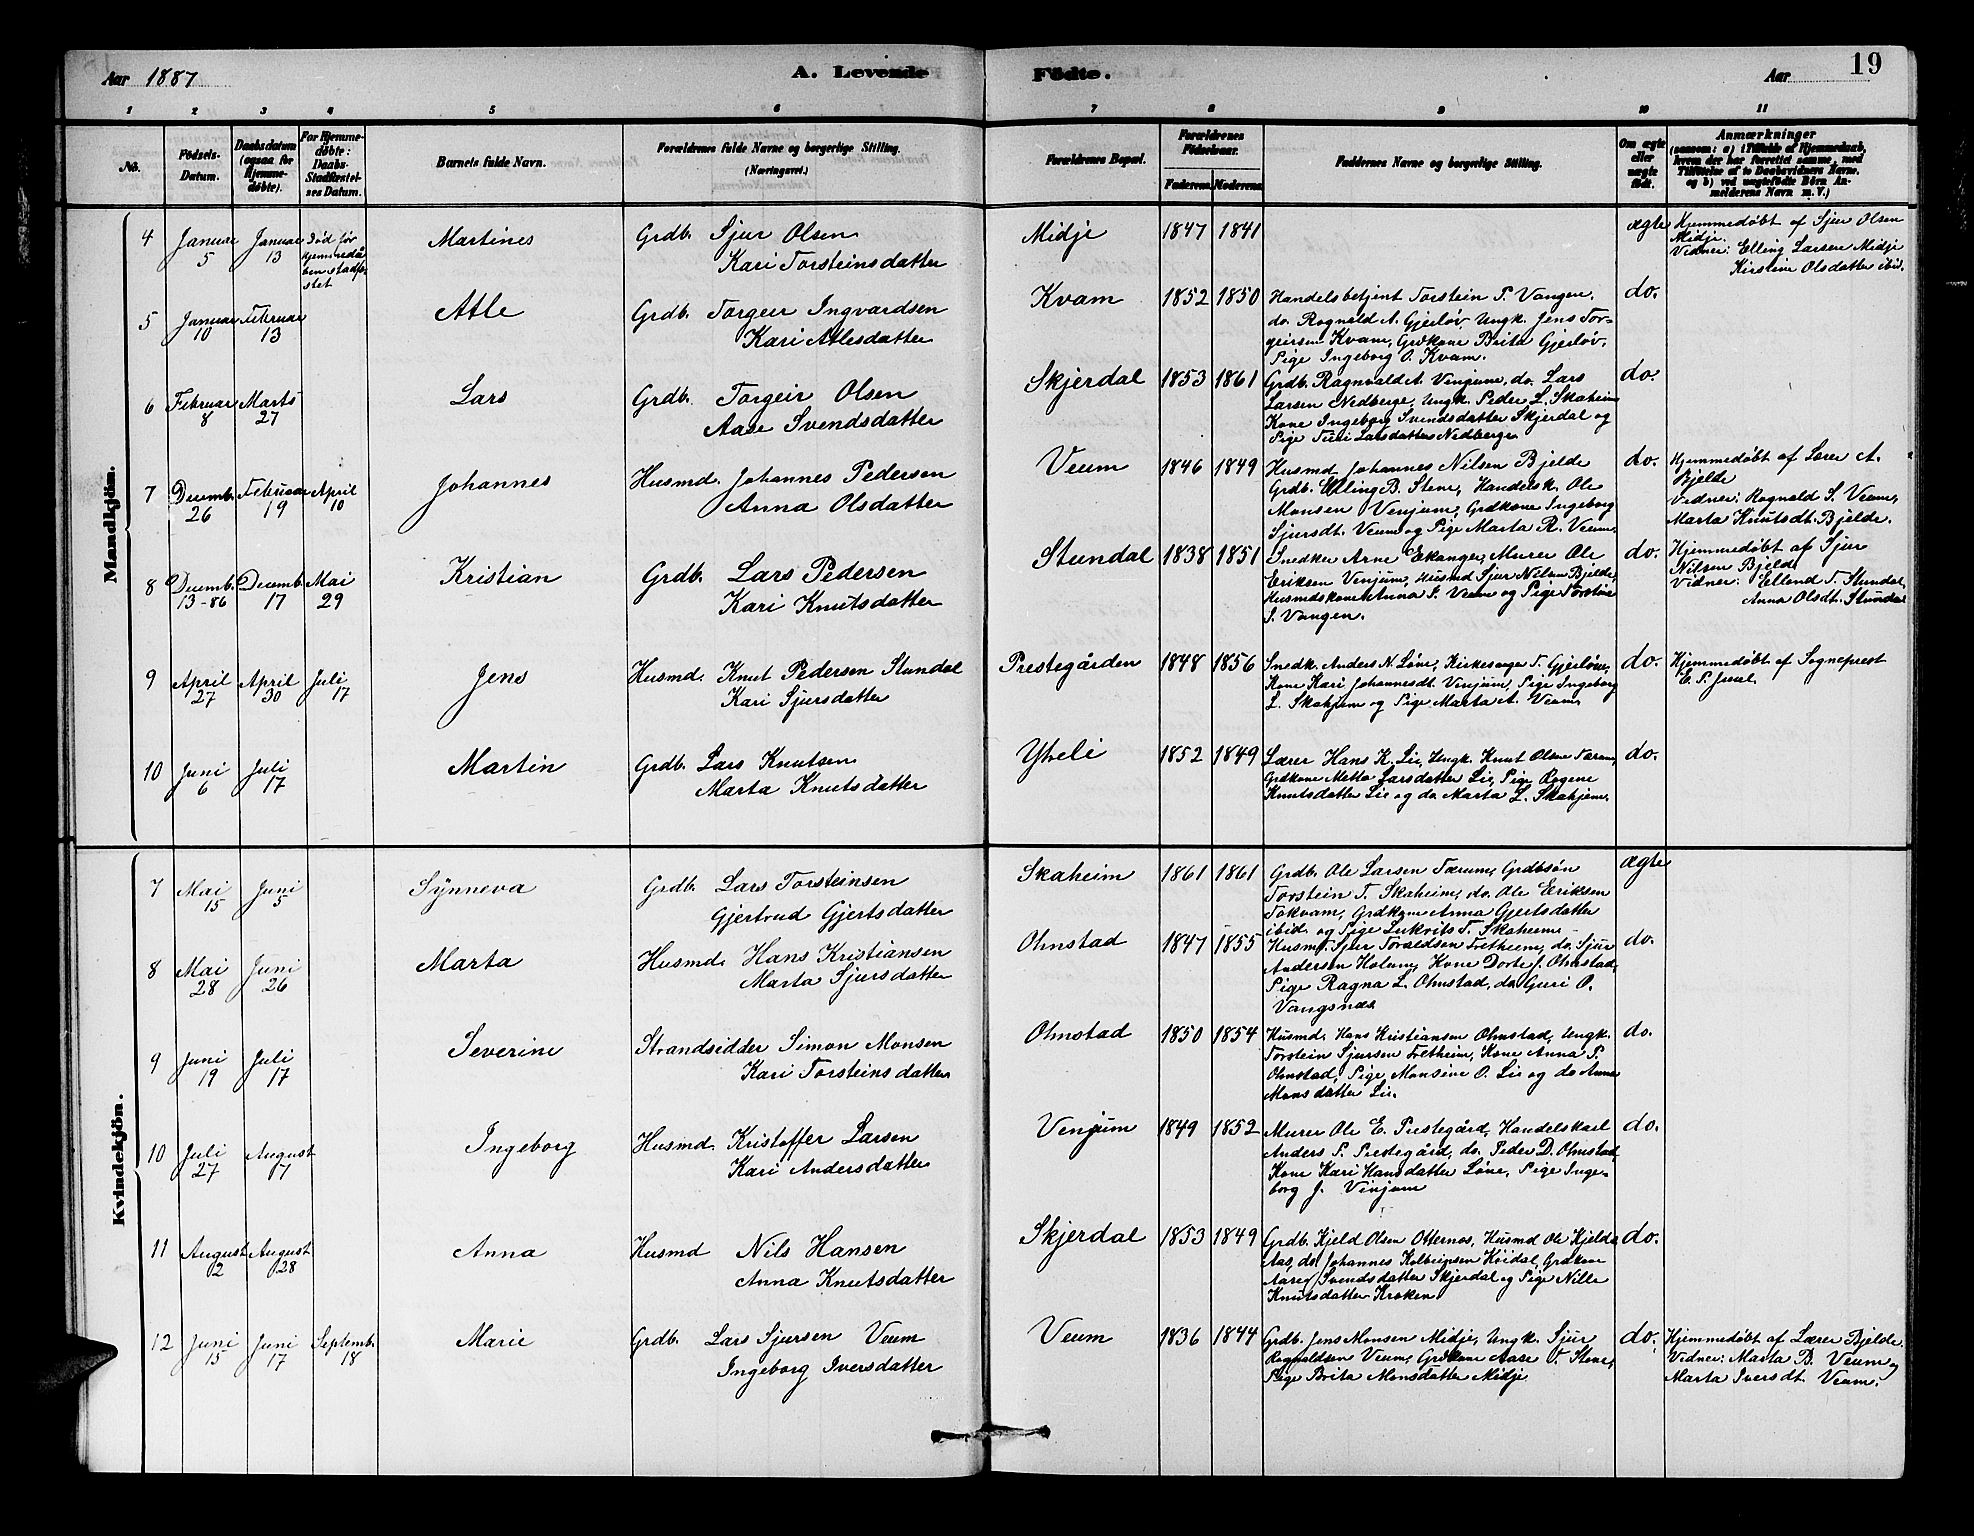 Aar 1887
A. Levende
Födte.
Aar
19
1 2 3 4 5 6 7 8 9 10 11
No.
Födsels-Datum.
Daabsdatum (ogsaa for Hjemmedøbte).
For Hjemmedøbte: Daabs-Stadfæstelses Datum.
Barnets fulde Navn.
Forældrenes fulde Navne og borgerlige Stilling.
(Næringsvei.)
Forældrenes Bopæl.
Forældrenes Fødselsaar.
Faderens. Moderens.
Faddernes Navne og borgerlig Stilling.
Om ægte eller uægte født.
Anmærkninger
(saasom: a) i Tilfælde af Hjemmedaab, hvem der har forrettet samme, med Tilføielse af to Daabsvidners Navne, og b) ved uægtefødte Börn Anmelderens Navn m. V.)
Mandkjön.
4 Januar 5 Januar 13 Död før hjemmedåben stadfæstet Martines Grdb. Sjur Olsen
Kari Torsteinsdatter
Midje 1847 1841 ægte
Hjemmedøbt af Sjur Olsen
Midje.
Vidner: Elling Larsen Midje
Kirstine Olsdatter ibid.
5 Januar 10 Februar 13 Atle Grdb. Torgeir Ingvardsen
Kari Atlesdatter
Kvam 1852 1850 Handelsbetjent Torstein T. Vangen, do.
do. Rognald A. Gjerløv, Ungk. Jens Tor-
geirsen Kvam, Grdkone Brita Gjerløv,
Pige Ingeborg O. Kvam.
6 Februar 8 Marts 27 Lars Grdb. Torgeir Olsen
Aase Svendsdatter
Skjerdal 1853 1861 Grdb. Ragnvald A. Vinjum, do. Lars do.
Larsen Nedberge, Ungk. Peder L. Skaheim
Kone Ingeborg Svendsdatter Skjerdal og
Pige Turi Larsdatter Nedberge
7 Decemb. 26 Februar 19 April 10 Johannes Husmd. Johannes Pedersen
Anna Olsdatter
Veum 1846 1849 Husmd Johannes Nilsen Bjelde do.
Grdb. Elling B. Stene, Handelsk. Ole
Monsen Venjum, Grdkone Ingeborg
Sjursdt. Veum og Pige Marta R. Veum
Hjemmedøbt af Lærer A.
Bjelde
Vidner: Rognald S. Veum,
Marta Knutsdt. Bjelde.
8 Decemb. 13-86 Decemb. 17 Mai 29 Kristian Grdb. Lars Pedersen
Kari Knutsdatter
Stundal 1838 1851 Snedker Arne Ekanger, Murer Ole do.
Eriksen Vinjum, Husmd Sjur Nilsen Bjelde,
Husmdskone Anna S. Veum og Pige Torstine
S. Vangen.
Hjemmedøbt af Sjur
Nilsen Bjelde
Vidner: Ellend T. Stundal,
Anna Olsdt. Stundal
9 April 27 April 30 Juli 17 Jens Husmd. Knut Pedersen Stundal
Kari Sjursdatter
Prestegården 1848 1856 Snedk. Anders N. Løne, Kirkesanger T. Gjerløv, do.
Kone Kari Johannesdt. Vinjum, Pige Ingeborg
L. Skahjem og Pige Marta A. Veum
Hjemmedøbt af Sogneprest
E. P. Juul.
10 Juni 6 Juli 17 Martin Grdb. Lars Knutsen
Marta Knutsdatter
Ytreli 1852 1849 Lærer Hans K. Lie, Ungk. Knut Olsen Tærum, do.
Grdkone Metta Larsdatter Lie, Pige Rogene
Knutsdatter Lie og do. Marta L. Skahjem.
Kvindekjön.
7 Mai 15 Juni 5 Synneva Grdb. Lars Torsteinsen
Gjertrud Gjertsdatter
Skaheim 1861 1861 Grdb. Ole Larsen Tærum, Grdbsön ægte
Torstein T. Skaheim, do. Ole Eriksen
Tokvam, Grdkone Anna Gjertsdatter
ibid. og Pige Lukrits T. Skaheim
8 Mai 28 Juni 26 Marta Husmd. Hans Kristiansen
Marta Sjursdatter
Ohnstad 1847 1855 Husmd. Sjur Toraldsen Fretheim, do. Sjur do.
Andersen Holum, Kone Dorte J. Ohnstad,
Pige Ragna L. Ohnstad, do. Guri O.
Vangsnæs
9 Juni 19 Juli 17 Severine Strandsidder Simon Monsen
Kari Torsteinsdatter
Ohnstad 1850 1854 Husmd. Hans Kristiansen Ohnstad, Ungk. do.
Torstein Sjursen Fretheim, Kone Anna P.
Ohnstad, Pige Monsine O. Lie og do Anna
Monsdatter Lie.
10 Juli 27 August 7 Ingeborg Husmd. Kristoffer Larsen
Kari Andersdatter
Venjum 1849 1852 Murer Ole E. Prestegård, Handelskarl do.
Anders P. Prestegård, do. Peder D. Ohnstad,
Kone Kari Hansdatter Løne, Pige Inge-
borg J. Vinjum
11 August 2 August 28 Anna Husmd Nils Hansen
Anna Knutsdatter
Skjerdal 1853 1849 Grdb. Kjeld Olsen Otternes, Husmd Ole Kjelds. do.
Aas, do. Johannes Kolbeinsen Kvidal, Grdkone
Svendsdatter Skjerdal og Pige Nille
Knutsdatter Kroken
12 Juni 15 Juni 17 Septemb. 18 Marie Grdb. Lars Sjursen Veum
Ingeborg Iversdatter
Veum 1836 1844 Grdb. Jens Monsen Midje, Ungk. Sjur do.
Rognaldsen Veum, Grdkone Aase O. Stene,
Pige Brita Monsdatter Midje
Hjemmedøbt af Lærer Bjelde.
Vidner: Marta B. Veum og
Marta Iversdt. Veum.